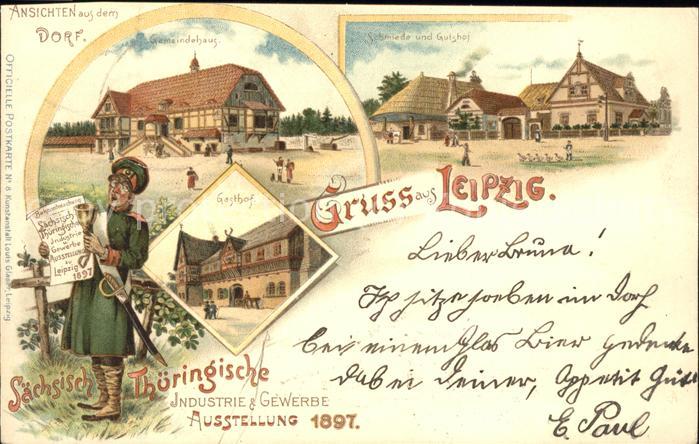 ANSICHTEN aus dem
DORF.
Gemeindehaus.
Schmiede und Gutshof
OFFICIELLE POSTKARTE No 8 Kunstanstalt Louis Glaser, Leipzig
Gasthof.
Gruss aus LEIPZIG.
Bekanntmachung
Sächsisch
Thüringische
Industrie &
Gewerbe
Ausstellung
zu
Leipzig
1897
Lieber Bruno!
Ich sitze soeben im Dorf
bei einem Glas Bier gedenke
dabei Deiner, Appetit Gut
E Paul
Sächsisch Thüringische
INDUSTRIE & GEWERBE
AUSSTELLUNG 1897.